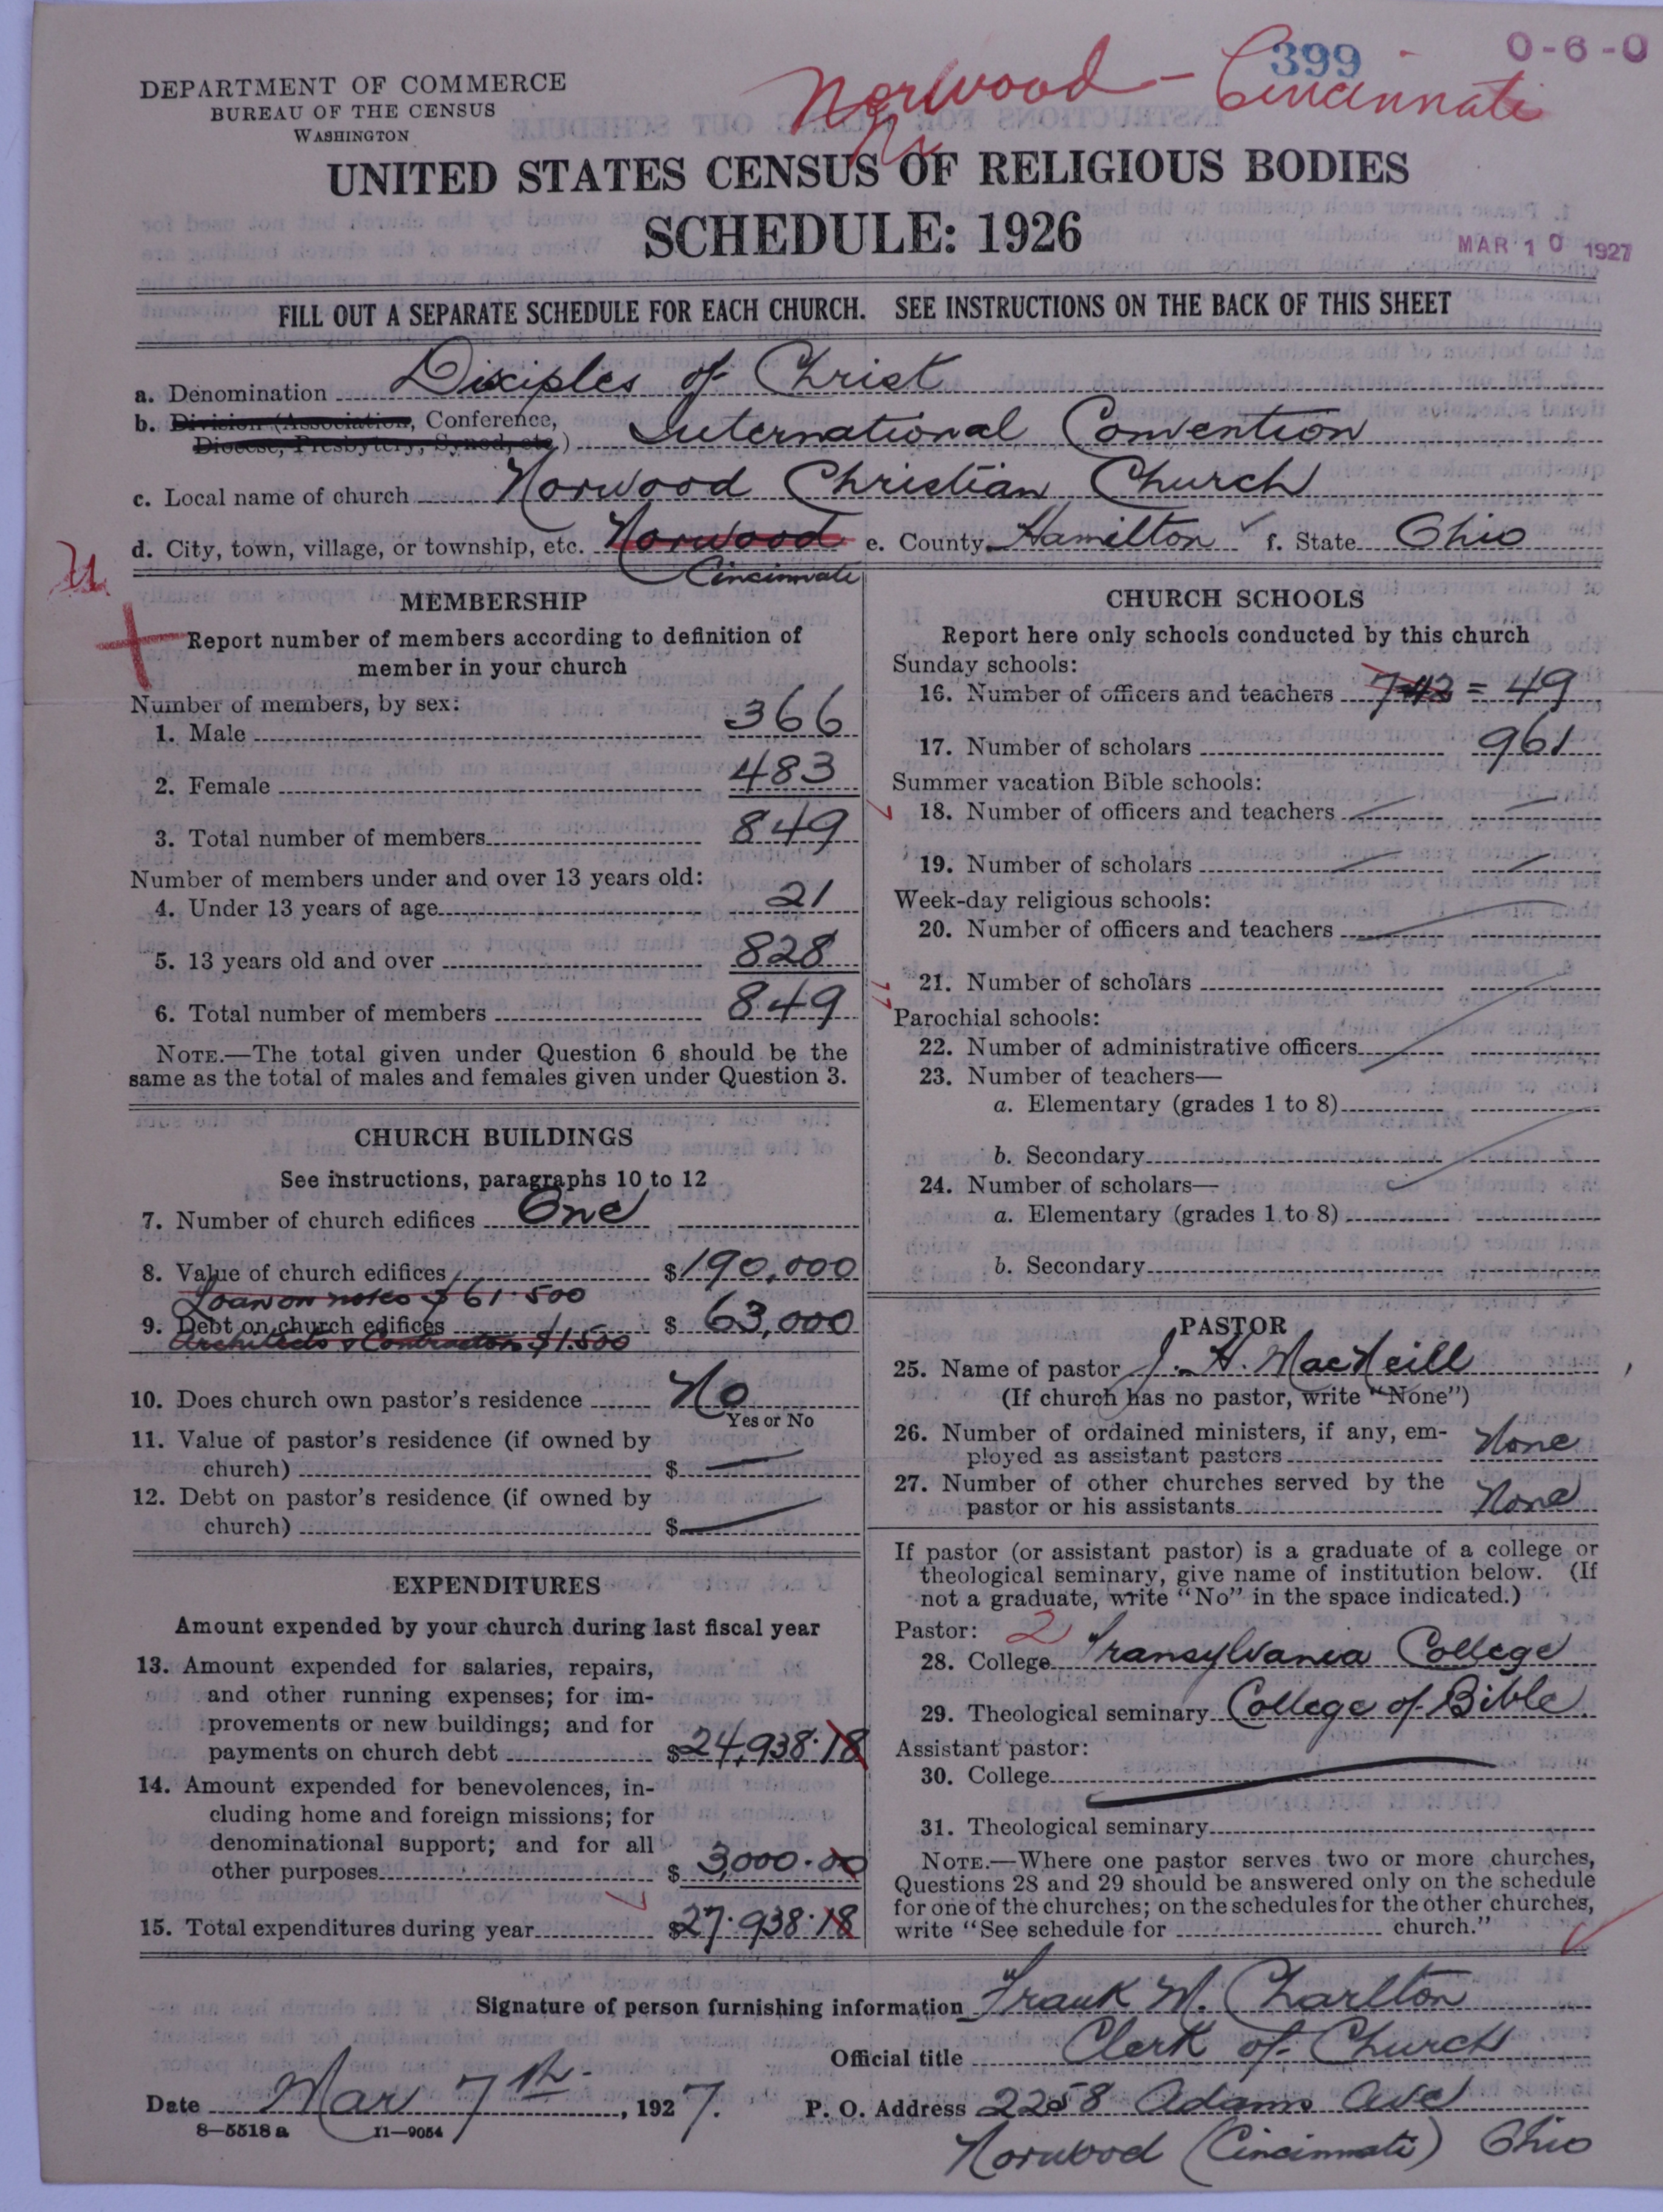 399
0-6-0
Norwood - Cincinnati
DEPARTMENT OF COMMERCE
BUREAU OF THE CENSUS
WASHINGTON
UNITED STATES CENSUS OF RELIGIOUS BODIES
SCHEDULE: 1926
MAR 10 1927
FILL OUT A SEPARATE SCHEDULE FOR EACH CHURCH. SEE INSTRUCTIONS ON THE BACK OF THIS SHEET
a. Denomination Disciples of Christ
b. Division (Association, Conference,
Diocese, Presbytery, Synod, etc.) International Convention
c. Local name of church Norwood Christian Church
d. City, town, village, or township, etc. Norwood e. County Hamilton f. State Ohio
Cincinnati
MEMBERSHIP
Report number of members according to definition of
member in your church
Number of members, by sex:
1. Male 366
2. Female 483
3. Total number of members 849
Number of members under and over 13 years old:
4. Under 13 years of age 21
5. 13 years old and over 828
6. Total number of members 849
NOTE.—The total given under Question 6 should be the
same as the total of males and females given under Question 3.
CHURCH BUILDINGS
See instructions, paragraphs 10 to 12
7. Number of church edifices One
8. Value of church edifices $190,000
Loan on notes $61.500
9. Debt on church edifices $ 63,000
Architects & Contractors $1.500
10. Does church own pastor's residence No
Yes or No
11. Value of pastor's residence (if owned by
church) $ —
12. Debt on pastor's residence (if owned by
church) $ —
EXPENDITURES
Amount expended by your church during last fiscal year
13. Amount expended for salaries, repairs,
and other running expenses; for im-
provements or new buildings; and for
payments on church debt $24,938.18
14. Amount expended for benevolences, in-
cluding home and foreign missions; for
denominational support; and for all
other purposes $ 3,000.00
15. Total expenditures during year $27.938.18
CHURCH SCHOOLS
Report here only schools conducted by this church
Sunday schools:
16. Number of officers and teachers 7-42 = 49
17. Number of scholars 961
Summer vacation Bible schools:
18. Number of officers and teachers
19. Number of scholars
Week-day religious schools:
20. Number of officers and teachers
21. Number of scholars
Parochial schools:
22. Number of administrative officers
23. Number of teachers—
a. Elementary (grades 1 to 8)
b. Secondary
24. Number of scholars—
a. Elementary (grades 1 to 8)
b. Secondary
PASTOR
25. Name of pastor J. H. MacNeill
(If church has no pastor, write "None")
26. Number of ordained ministers, if any, em-
ployed as assistant pastors None
27. Number of other churches served by the
pastor or his assistants None
If pastor (or assistant pastor) is a graduate of a college or
theological seminary, give name of institution below. (If
not a graduate, write "No" in the space indicated.)
Pastor: 2
28. College Transylvania College
29. Theological seminary College of Bible
Assistant pastor:
30. College
31. Theological seminary
NOTE.—Where one pastor serves two or more churches,
Questions 28 and 29 should be answered only on the schedule
for one of the churches; on the schedules for the other churches,
write "See schedule for church."
Signature of person furnishing information Frank M. Charlton
Official title Clerk of Church
Date Mar 7th, 1927. P. O. Address 2258 Adams Ave
8—5518a 11—9054
Norwood (Cincinnati) Ohio